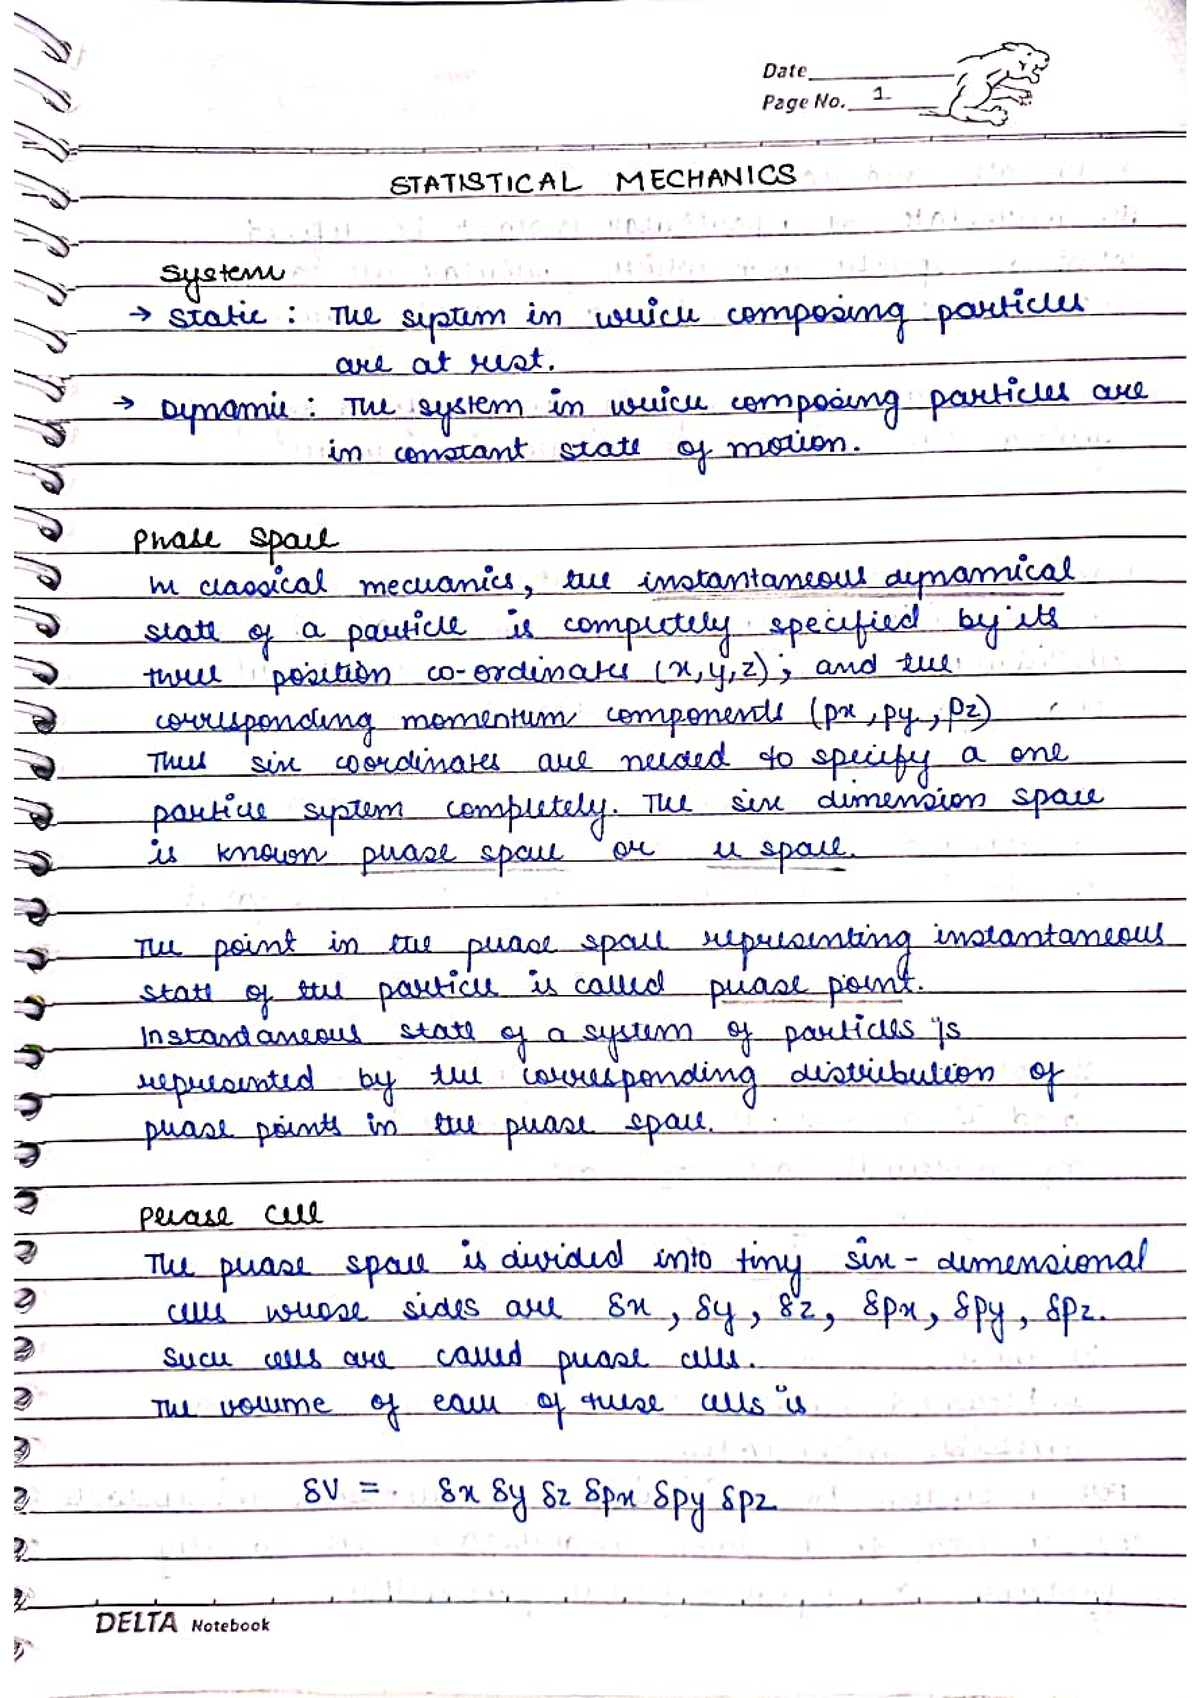 Date
Page No. 1
STATISTICAL MECHANICS
System
→ Static : The system in which composing particles
are at rest.
→ Dynamic : The system in which composing particles are
in constant state of motion.
Phase Space
In classical mechanics, the instantaneous dynamical
state of a particle is completely specified by its
three position co-ordinates (x,y,z) ; and the
corresponding momentum components (px ,py , pz)
Thus six coordinates are needed to specify a one
particle system completely. The six dimension space
is known phase space or u space.
The point in the phase space representing instantaneous
state of the particle is called phase point.
Instandaneous state of a system of particles is
represented by the corresponding distribution of
phase points in the phase space.
Phase Cell
The phase space is divided into tiny six - dimensional
cells whose sides are δx , δy , δz, δpx, δpy , δpz.
Such cells are called phase cells.
The volume of each of these cells is
δV = δx δy δz δpx δpy δpz
DELTA Notebook